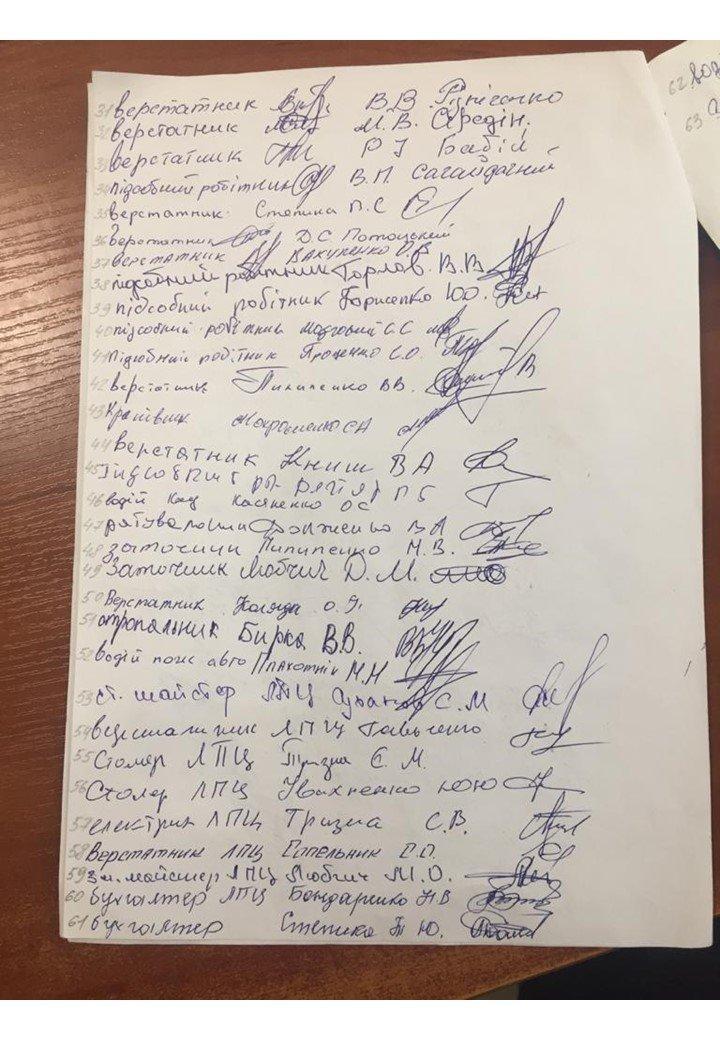 31 верстатник В.В. Різніченко
32 верстатник М.В. Середін.
33 верстатник Р І Бабій
34 підсобний робітник В.П. Сагайдачний
35 верстатник. Степика П.С
36 верстатник Д.С Потоцький
37 верстатник Вакуленко О.В
38 підсобний робітник Горлов. В.В
39 підсобний робітник Борисенко Ю.О.
40 підсобний робітник С.С
41 підсобний робітник Проценко С.О.
42 верстатник Пилипенко В В.
43 Мокроменко С А
44 верстатник Книш В А
45
46 водій Касяненко О С
47 В А
48 заточник Пилипенко М.В.
49 Заточник Любчич Д.М.
50 Верстатник Коляда О.Я.
51 стропальник Бирка В.В.
52 водій пож авто Плахотнік М.Н
53 ст. майстер ЛПЦ С.М
54 ЛПЦ
55 Столяр ЛПЦ Тризна Є.М.
56 Столяр ЛПЦ Івахненко Ю Ю
57 електрик ЛПЦ Тризна С.В.
58 Верстатник ЛПЦ Сопельник
59 зм. майстер ЛПЦ Любчич М.О.
60 бухгалтер ЛПЦ Бондаренко Н В
61 бухгалтер Степика Т Ю.
62 вод
63